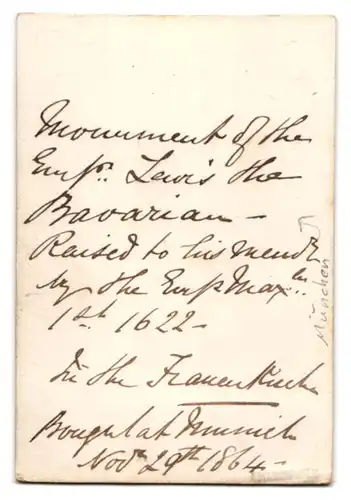 Monument of the
Empr. Lewis the
Bavarian —
Raised to his mem
by the Emp Maxln
1st. 1622 —
In the Frauenkirche
Bought at Munich
Novr 29th 1864 —
München